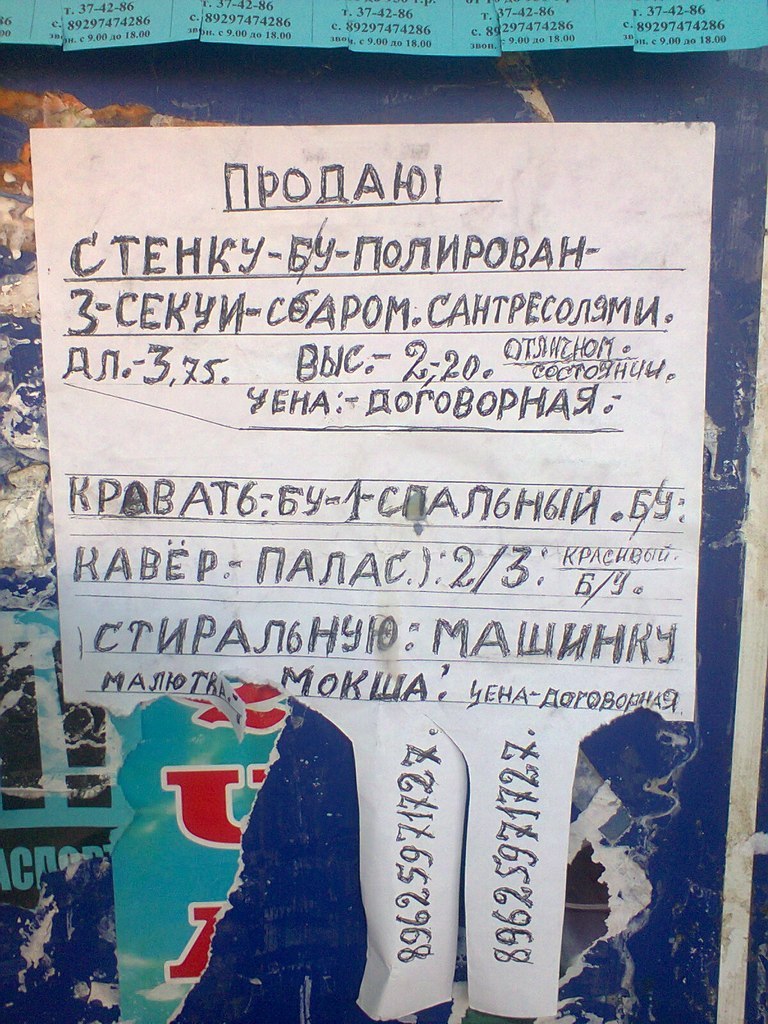 т. 37-42-86
с. 89297474286
зв. с 9.00 до 18.00
т. 37-42-86
с. 89297474286
звон. с 9.00 до 18.00
т. 37-42-86
с. 89297474286
звон. с 9.00 до 18.00
т. 37-42-86
с. 89297474286
звон. с 9.00 до 18.00
т. 37-42-86
с. 89297474286
звон. с 9.00 до 18.00
ПРОДАЮ!
СТЕНКУ-БУ-ПОЛИРОВАН-
3-СЕКЦИ-СБАРОМ. САНТРЕСОЛЯМИ.
ДЛ.-3,75. ВЫС.- 2,20. ОТЛИЧНОМ.
СОСТОЯНИИ.
ЦЕНА:- ДОГОВОРНАЯ.-
КРОВАТЬ:-БУ-1-СПАЛЬНЫЙ. БУ:
КАВЁР:- ПАЛАС.):2/3: КРАСИВЫЙ.
Б/У.
СТИРАЛЬНУЮ: МАШИНКУ
МАЛЮТКА. МОКША: ЦЕНА-ДОГОВОРНАЯ
89625971727.
89625971727.